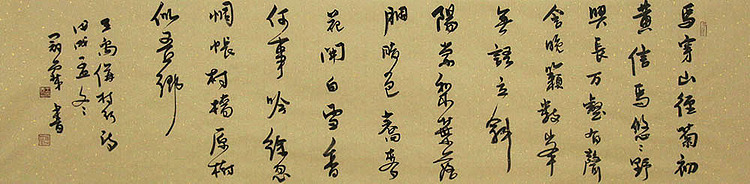 馬穿山徑菊初
黃信馬悠〻野
興長万壑有聲
含晚籟數峯
無語立斜
陽棠梨葉落
胭脂色蕎麥
花開白雪香
何事吟餘忽
惆悵村橋原樹
似吾鄉
王禹偁村行詩
戌孟冬
書